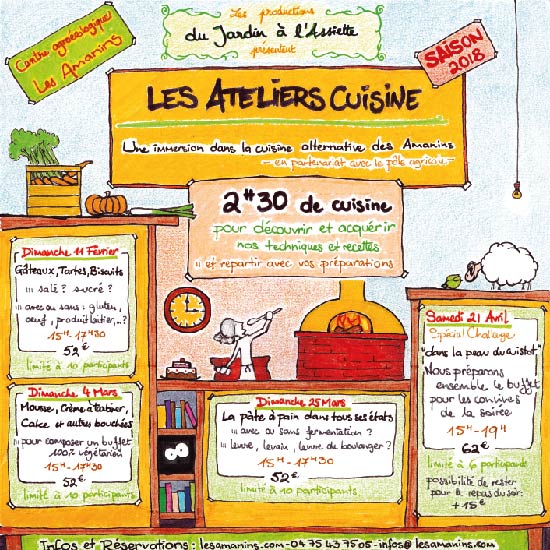 Centre agroécologique
Les Amanins
Les productions
du Jardin à l'Assiette
présentent
SAISON
2018
LES ATELIERS CUISINE
Une immersion dans la cuisine alternative des Amanins
- en partenariat avec le pôle agricole -
2H30 de cuisine
pour découvrir et acquérir
nos techniques et recettes
... et repartir avec vos préparations
Dimanche 11 Février
Gâteaux, Tartes, Biscuits
... salé ? sucré ?
... avec ou sans : gluten,
oeuf, produit laitier,...?
15H - 17H30
52€
limité à 10 participants
Dimanche 4 Mars
Mousse, Crème à tartiner,
Cake et autres bouchées
... pour composer un buffet
100% végétarien
15H - 17H30
52€
limité à 10 participants
Dimanche 25 Mars
La pâte à pain dans tous ses états
... avec ou sans fermentation ?
... levure, levain, levure de boulanger ?
15H - 17H30
52€
limité à 10 participants
Samedi 21 Avril
Spécial Challenge
"dans la peau du cuistot"
Nous préparons
ensemble le buffet
pour les convives
de la soirée
15H - 19H
62€
limité à 6 participants
possibilité de rester
pour le repas du soir :
+ 15€
Infos et Réservations : lesamanins.com - 04 75 43 75 05 - info@lesamanins.com